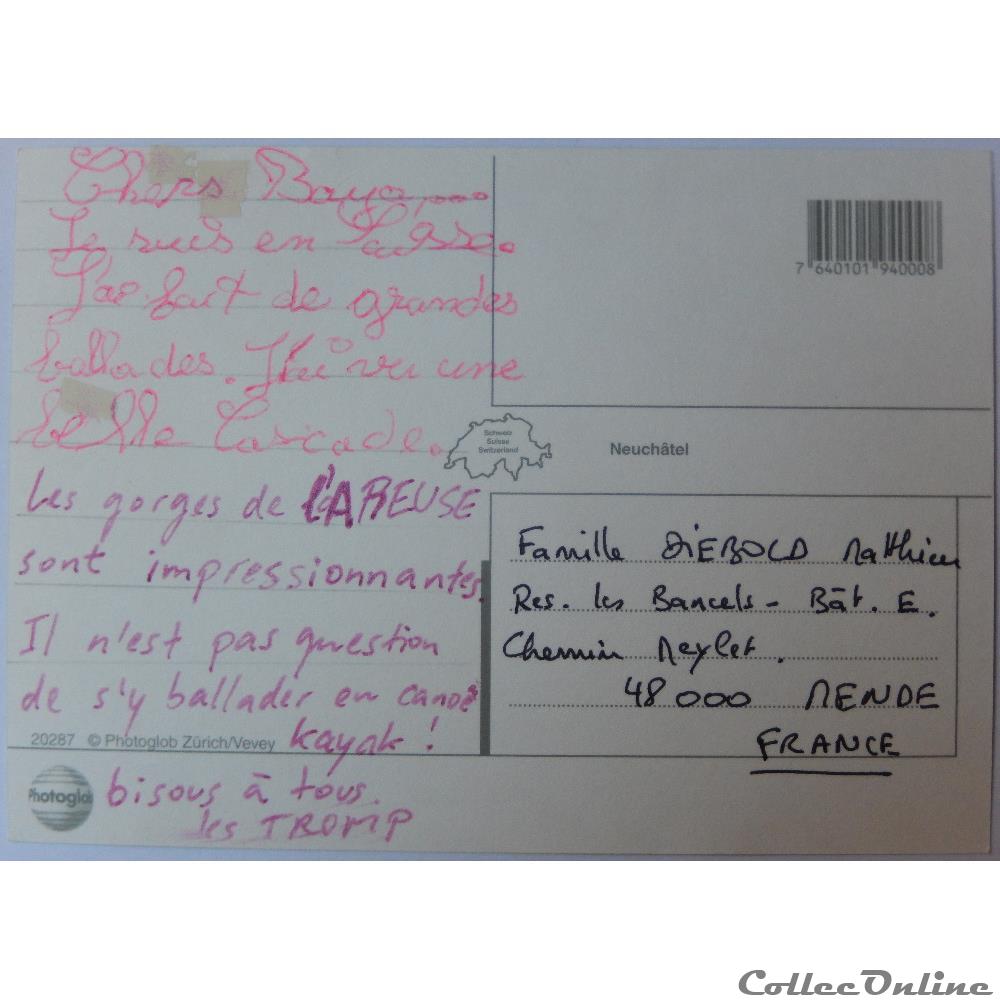 Chers Baya,...
Je suis en Suisse.
J'ai fait de grandes
ballades. J'ai vu une
belle Cascade.
Les gorges de l'AREUSE
sont impressionnantes.
Il n'est pas question
de s'y ballader en canoë
kayak !
bisous à tous.
les TROMP
20287 © Photoglob Zürich/Vevey
Photoglob
7 640101 940008
Schweiz
Suisse
Switzerland
Neuchâtel
Famille DIEBOLD Matthieu
Res. les Bancels - Bât. E.
Chemin Meylet.
48000 MENDE
FRANCE
CollecOnline